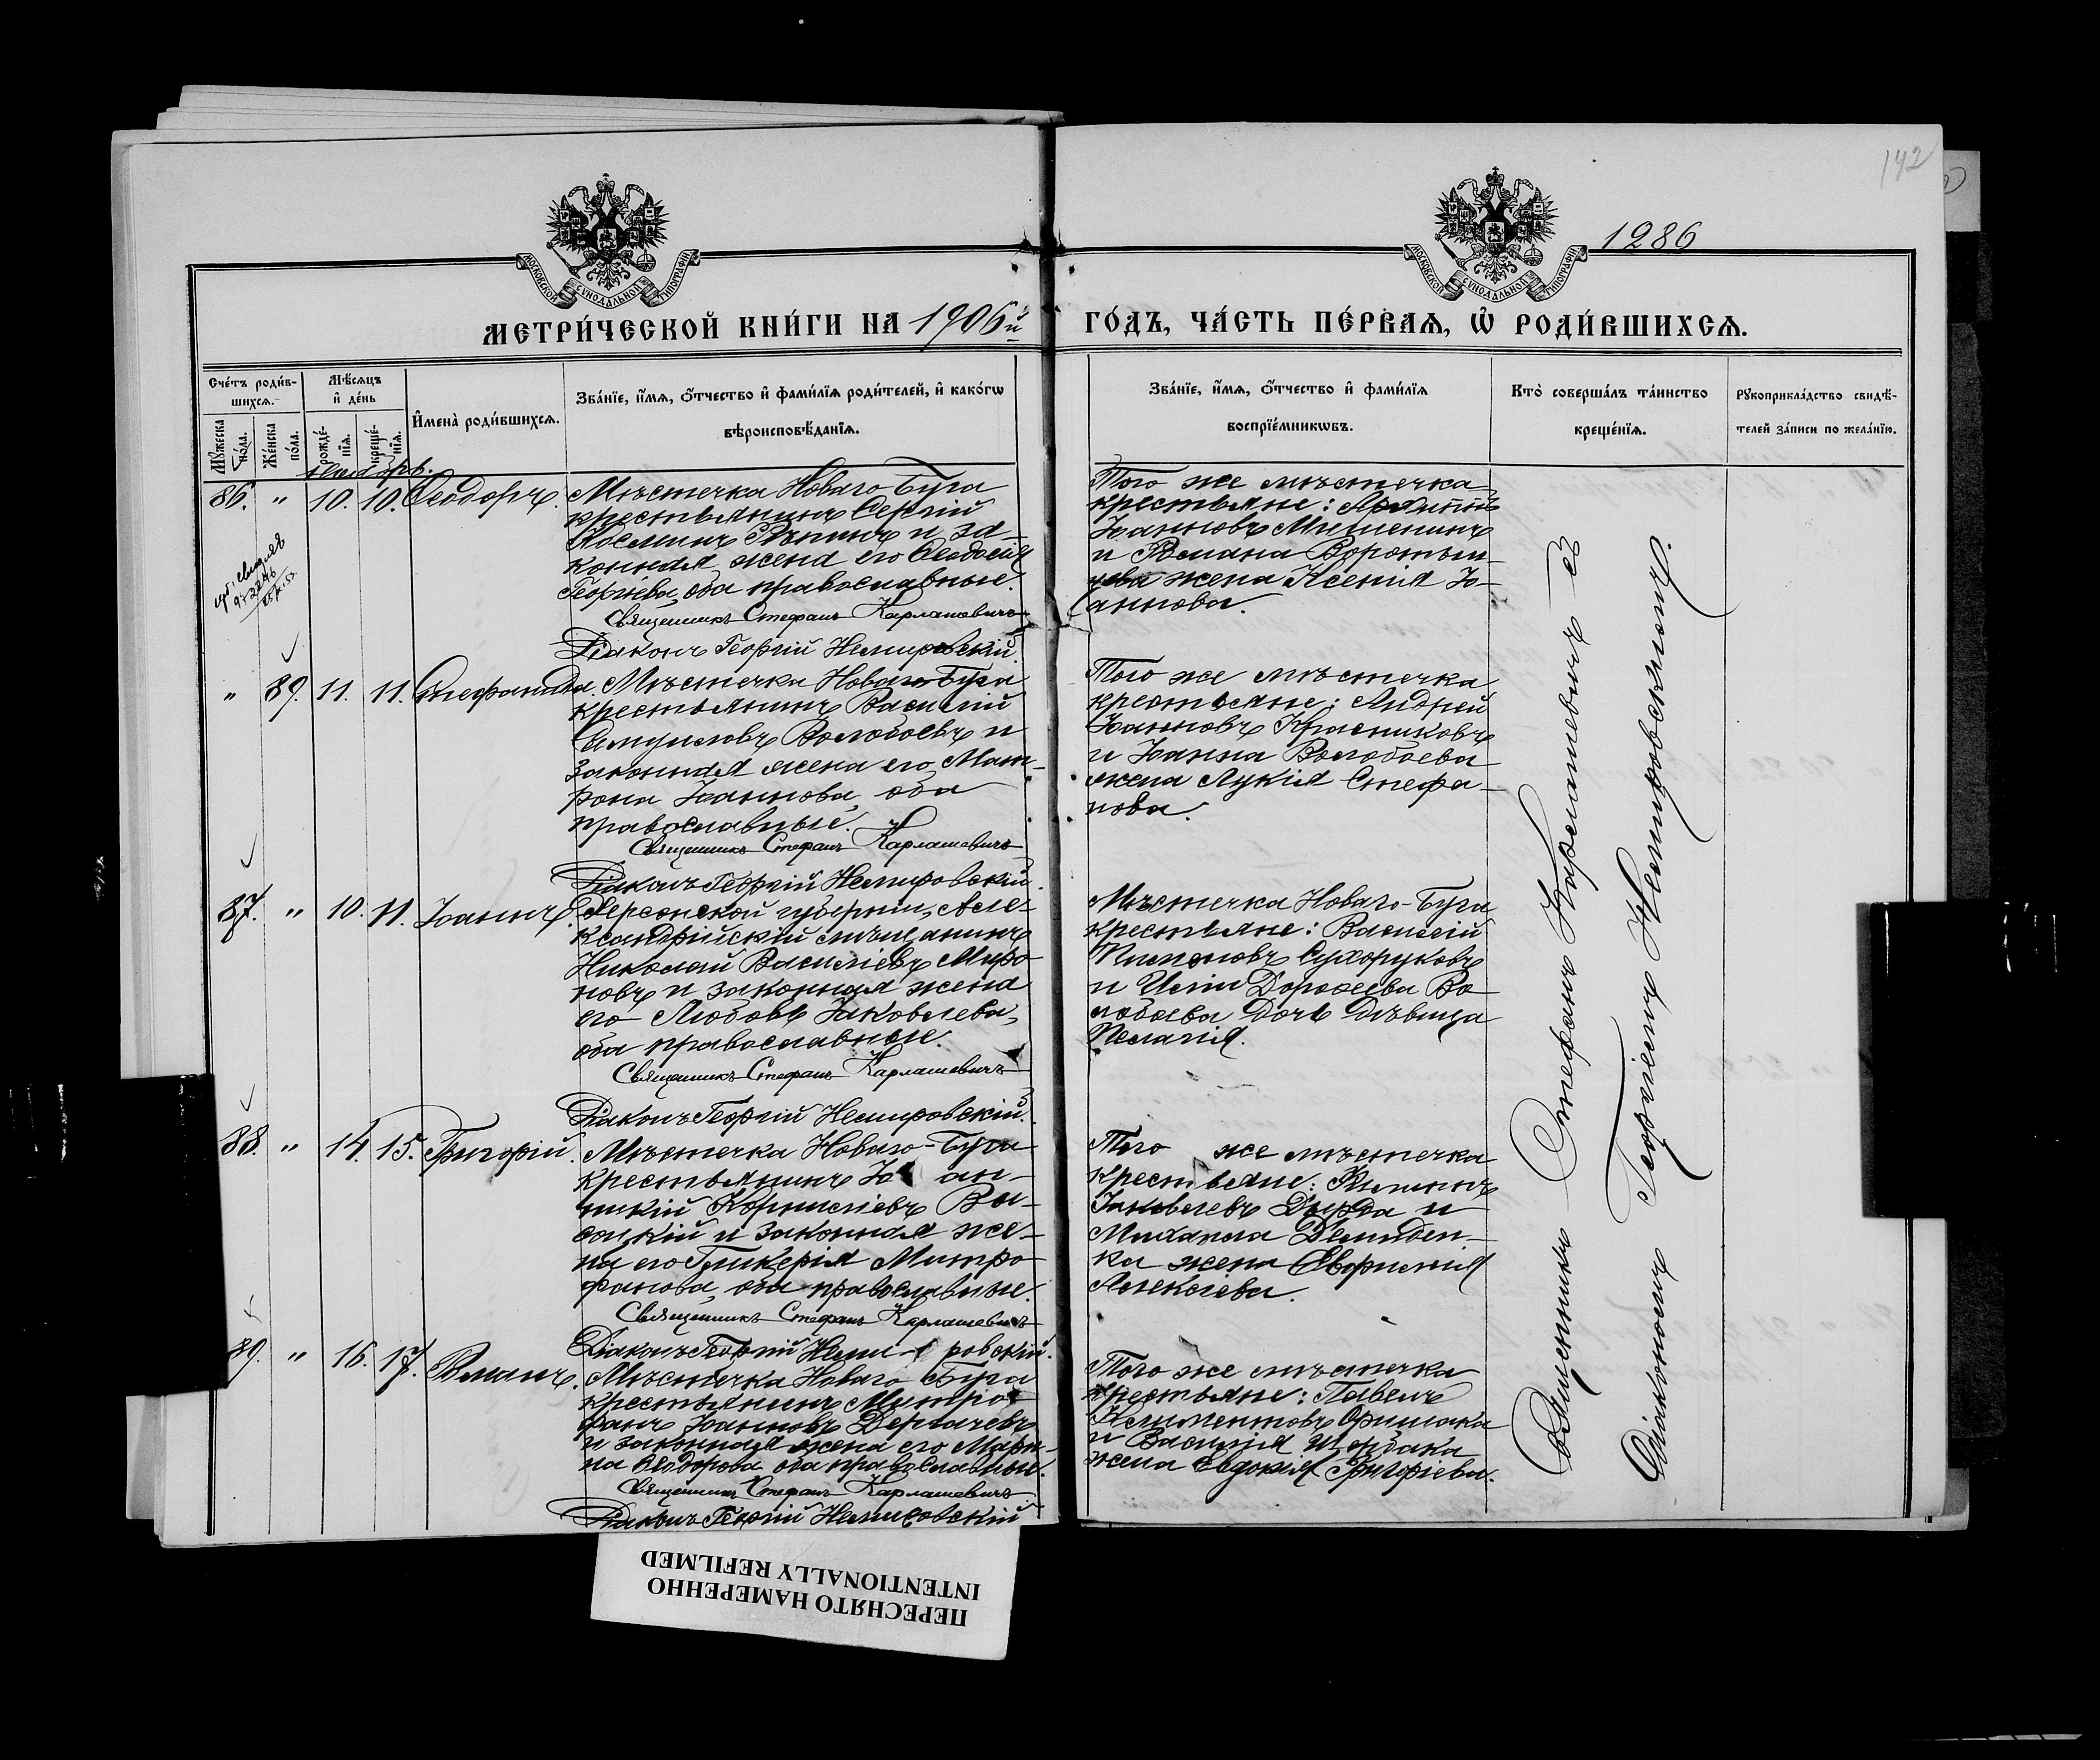 142
1286
МОСКОВСКОЙ СУНОДАЛЬНОЙ ТИПОГРАФІИ
МОСКОВСКОЙ СУНОДАЛЬНОЙ ТИПОГРАФІИ
МЕТРИ́ЧЕСКОЙ КНИ́ГИ НА 1906й
ГО́ДЪ, ЧА́СТЬ ПЕ́РВАѦ, Ѡ҆ РОДИ́ВШИХСѦ.
Сче́тъ роди́в-
шихсѧ.
Мꙋ́жеска по́ла.
Же́нска по́ла.
Мѣ́сѧцъ
и҆ де́нь
рожде́-
нїѧ.
креще́-
нїѧ.
И҆мена̀ роди́вшихсѧ.
Зва́нїе, и҆́мѧ, ѻ҆́тчество и҆ фами́лїѧ роди́телей, и҆ како́гѡ
вѣроисповѣ́данїѧ.
Зва́нїе, и҆́мѧ, ѻ҆́тчество и҆ фами́лїѧ
воспрїе́мникѡвъ.
Кто̀ соверша́лъ та́инство
креще́нїѧ.
Рꙋкоприкла́дство свидѣ́-
телей за́писи по жела́нїю.
86. " 10. 10. Ѳеодоръ.
Мѣстечка Новаго Буга
крестьянинъ Сергій
Косминъ Рѣпинъ и за-
конная жена его Ѳеодосія
Георгіева, оба православные.
Священникъ Стефанъ Карлашевичъ
Діаконъ Георгій Немировскій.
Того же мѣстечка
крестьяне:
Іоанновъ
и Романа
жена Ксенія Іо-
аннова.
" 89. 11. 11. Стефанида.
Мѣстечка Новаго Буга
крестьянинъ Василій
Самуиловъ Волобоевъ и
законная жена его Мат-
рона Іоаннова, оба
православные.
Священникъ Стефанъ Карлашевичъ
Діаконъ Георгій Немировскій.
Того же мѣстечка
крестьяне: Андрей
Іоанновъ Красниковъ
и Іоанна Волобоева
жена Лукія Стефа-
нова.
87. " 10. 11. Іоаннъ.
Херсонской губерніи, Але-
ксандрійскій мѣщанинъ
Николай Василіевъ Миро-
новъ и законная жена
его Любовь Іаковлева,
оба православные.
Священникъ Стефанъ Карлашевичъ
Діаконъ Георгій Немировскій.
Мѣстечка Новаго-Буга
крестьяне: Василій
Пименовъ Сухоруковъ
и Иліи Дорофеева Во-
лобоева дочь дѣвица
Пелагія.
88. " 14. 15. Григорій.
Мѣстечка Новаго-Буга
крестьянинъ Іо ан-
никій Корниліевъ Вы-
соцкій и законная же-
на его Гликерія Митро-
фанова, оба православные.
Священникъ Стефанъ Карлашевичъ
Діаконъ Георгій Неми ровскій.
Того же мѣстечка
крестьяне:
Іаковлевъ Дырда и
Михаила Демиден-
ка жена Евфимія
Алексіева.
89. " 16. 17. Романъ.
Мѣстечка Новаго Буга
крестьянинъ Митро-
фанъ Іоанновъ Дергачевъ
и законная жена его Мари-
на Ѳеодорова, оба православные.
Священникъ Стефанъ Карлашевичъ
Діаконъ Георгій Немировскій
Того же мѣстечка
крестьяне: Павелъ
Климентовъ
и Василія Щербака
жена Евдокія Григоріева.
Священникъ Стефанъ Карлашевичъ съ
Діакономъ Георгіемъ Немировскимъ.
ПЕРЕСНЯТО НАМЕРЕННО
INTENTIONALLY REFILMED